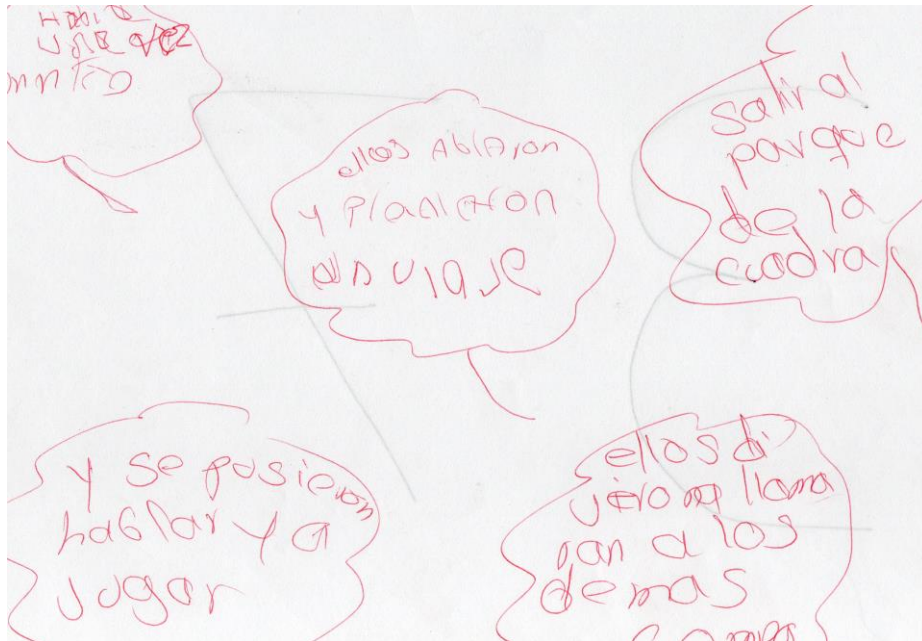 Había
una vez
ellos Ablaron
y Planieron
un viaje
salir al
parque
de la
cuadra
y se pusieron
hablar y a
jugar
ellos di
jeron llama
ran a los
demas